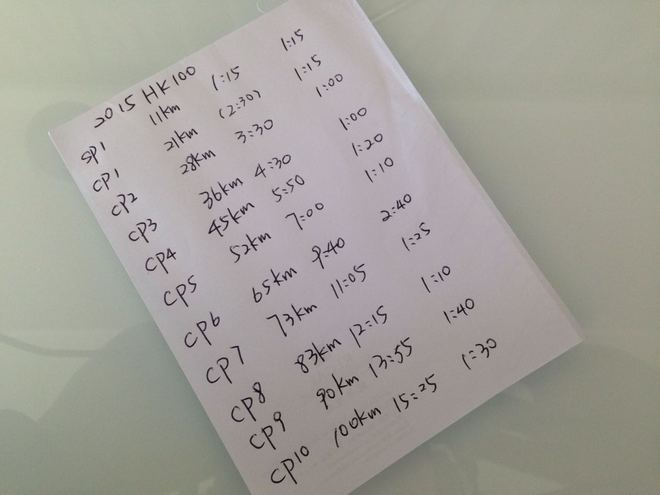 2015 HK100
SP1 11km 1:15 1:15
CP1 21km (2:30) 1:15
CP2 28km 3:30 1:00
CP3 36km 4:30 1:00
CP4 45km 5:50 1:20
CP5 52km 7:00 1:10
CP6 65km 9:40 2:40
CP7 73km 11:05 1:25
CP8 83km 12:15 1:10
CP9 90km 13:55 1:40
CP10 100km 15:25 1:30